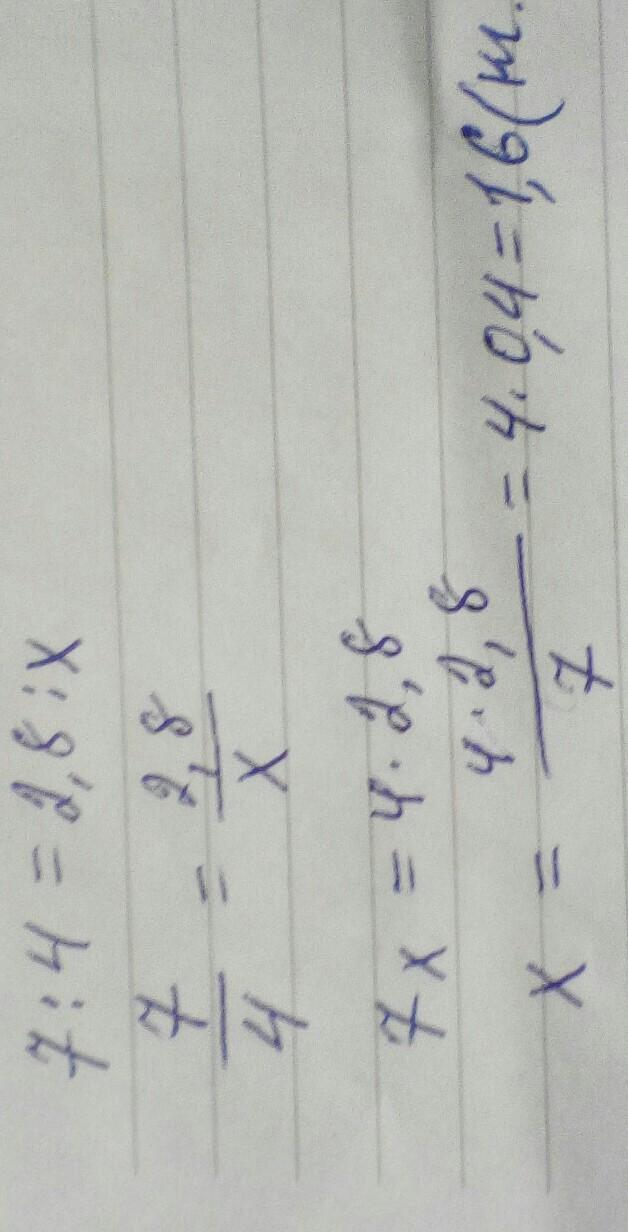 7 : 4 = 2,8 : x
7/4 = 2,8/x
7x = 4 · 2,8
x = 4 · 2,8/7 = 4 · 0,4 = 1,6 (м.